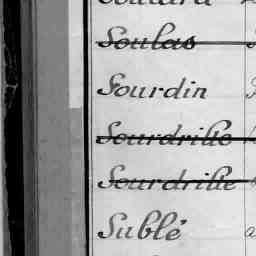 Soulard
Soulas
Sourdin
Sourdrille
Sourdrille
Sublé